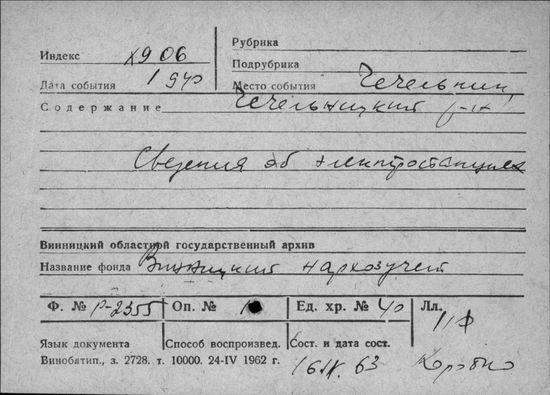 Индекс х9 06
Рубрика
Подрубрика
Дата события 1940
Место события Чечельник,
Содержание Чечельницкий р-н
Сведения об электростанциях
Винницкий областной государственный архив
Название фонда Винницкий нархозучет
Ф. № Р-2355 Оп. № 1 Ед. хр. № 40 Лл.
Язык документа Способ воспроизвед. Сост. и дата сост.
Винобятип., з. 2728. т. 10000. 24-IV 1962 г. 16.IV.63